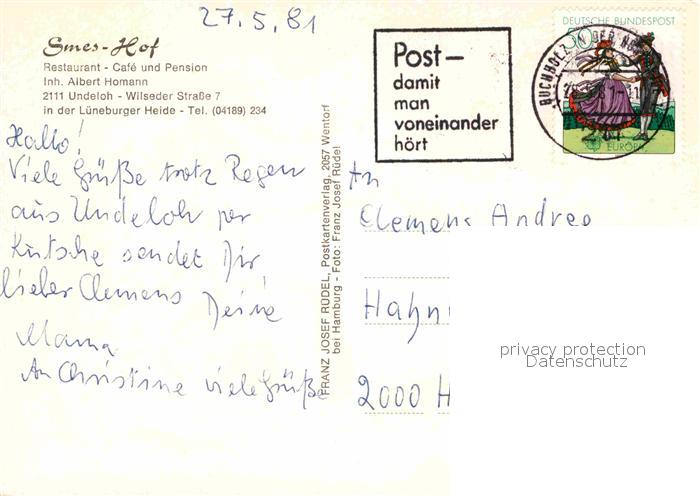 27.5.81
Smes-Hof
Restaurant - Café und Pension
Inh. Albert Homann
2111 Undeloh - Wilseder Straße 7
in der Lüneburger Heide - Tel. (04189) 234
Hallo!
Viele Grüße trotz Regen
aus Undeloh per
Kutsche sendet Dir,
lieber Clemens Deine
Mama
An Christine viele Grüße
FRANZ JOSEF RÜDEL, Postkartenverlag, 2057 Wentorf
bei Hamburg - Foto: Franz Josef Rüdel
Post –
damit
man
voneinander
hört
DEUTSCHE BUNDESPOST
50
BUCHHOLZ IN DER
EUROPA
An
Clemens Andrea
Hahn
2000 H
privacy protection
Datenschutz